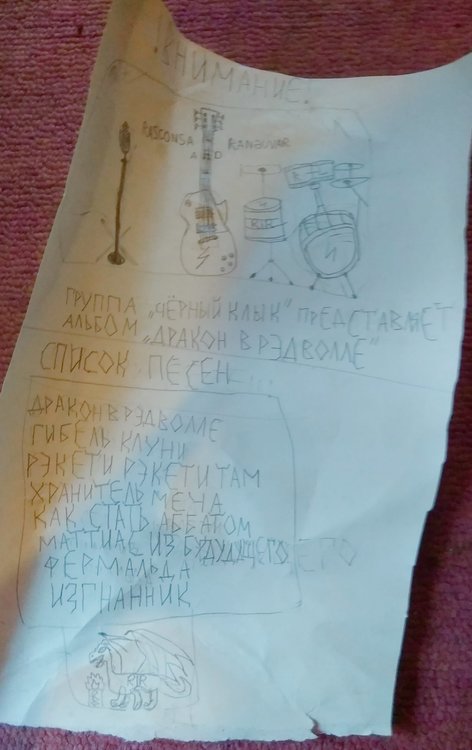 !ВНИМАНИЕ!
RASCONSA
AND RANGUVAR
RIR
ГРУППА „ЧЁРНЫЙ КЛЫК" ПРЕДСТАВЛЯЕТ
АЛЬБОМ „ДРАКОН В РЭДВОЛЛЕ"
СПИСОК ПЕСЕН...
ДРАКОН В РЭДВОЛЛЕ
ГИБЕЛЬ КЛУНИ
РЭКЕТИ РЭКЕТИ ТАМ
ХРАНИТЕЛЬ МЕЧА
КАК СТАТЬ АББАТОМ
МАТТИАС ИЗ БУДУЩЕГО
ФЕРМАЛЬДА
ИЗГНАННИК
RIR